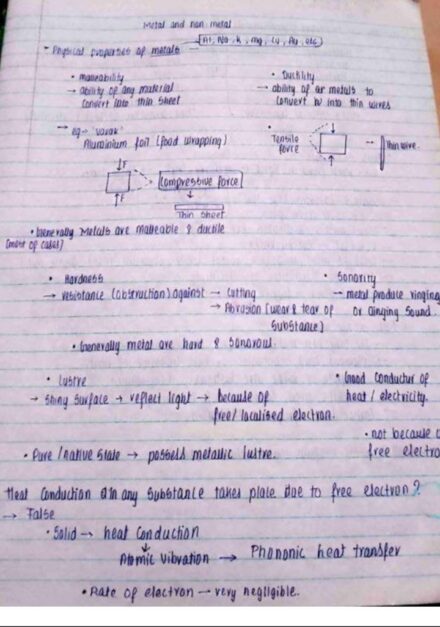 Metal and non metal
[Al, Na, K, Mg, Cu, Au, etc]
- Physical properties of metals -
• maleability
→ ability of any material
convert into thin sheet
→ eg:- 'varak'
Aluminium foil (food wrapping)
• Ductility
→ ability of metals to
convert into thin wires
• Tensile
force
→ Thin wire.
F
F
Compressive force
Thin Sheet
• Generally Metals are maleable & ductile
(most of cases)
• Hardness
→ resistance (obstruction) against → Cutting
→ Abrasion [wear & tear of
substance]
• Sonority
→ metal produce ringing
or dinging sound.
• Generally metal are hard & sonorous.
• Lustre
→ Shiny surface → reflect light → because of
free/localised electron.
• Good Conductor of
heat / electricity.
• not because
free electro
• Pure /native state → possess metallic lustre.
Heat Conduction in any substance takes place due to free electron?
→ False
• Solid → heat Conduction
Atomic Vibration → Phononic heat transfer
• Rate of electron → very negligible.